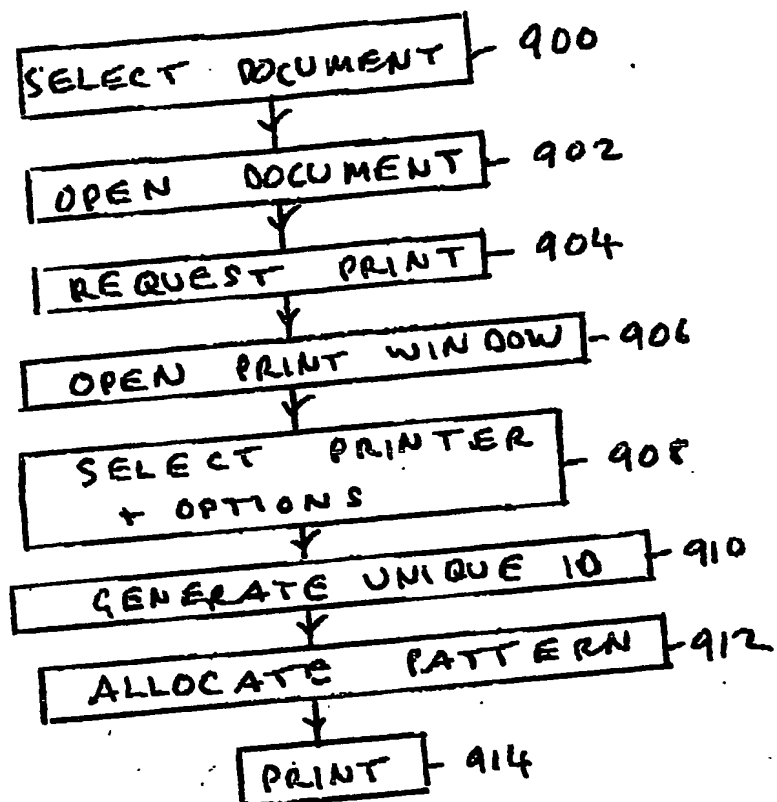 SELECT DOCUMENT 900
OPEN DOCUMENT 902
REQUEST PRINT 904
OPEN PRINT WINDOW 906
SELECT PRINTER 908
+ OPTIONS
GENERATE UNIQUE ID 910
ALLOCATE PATTERN 912
PRINT 914